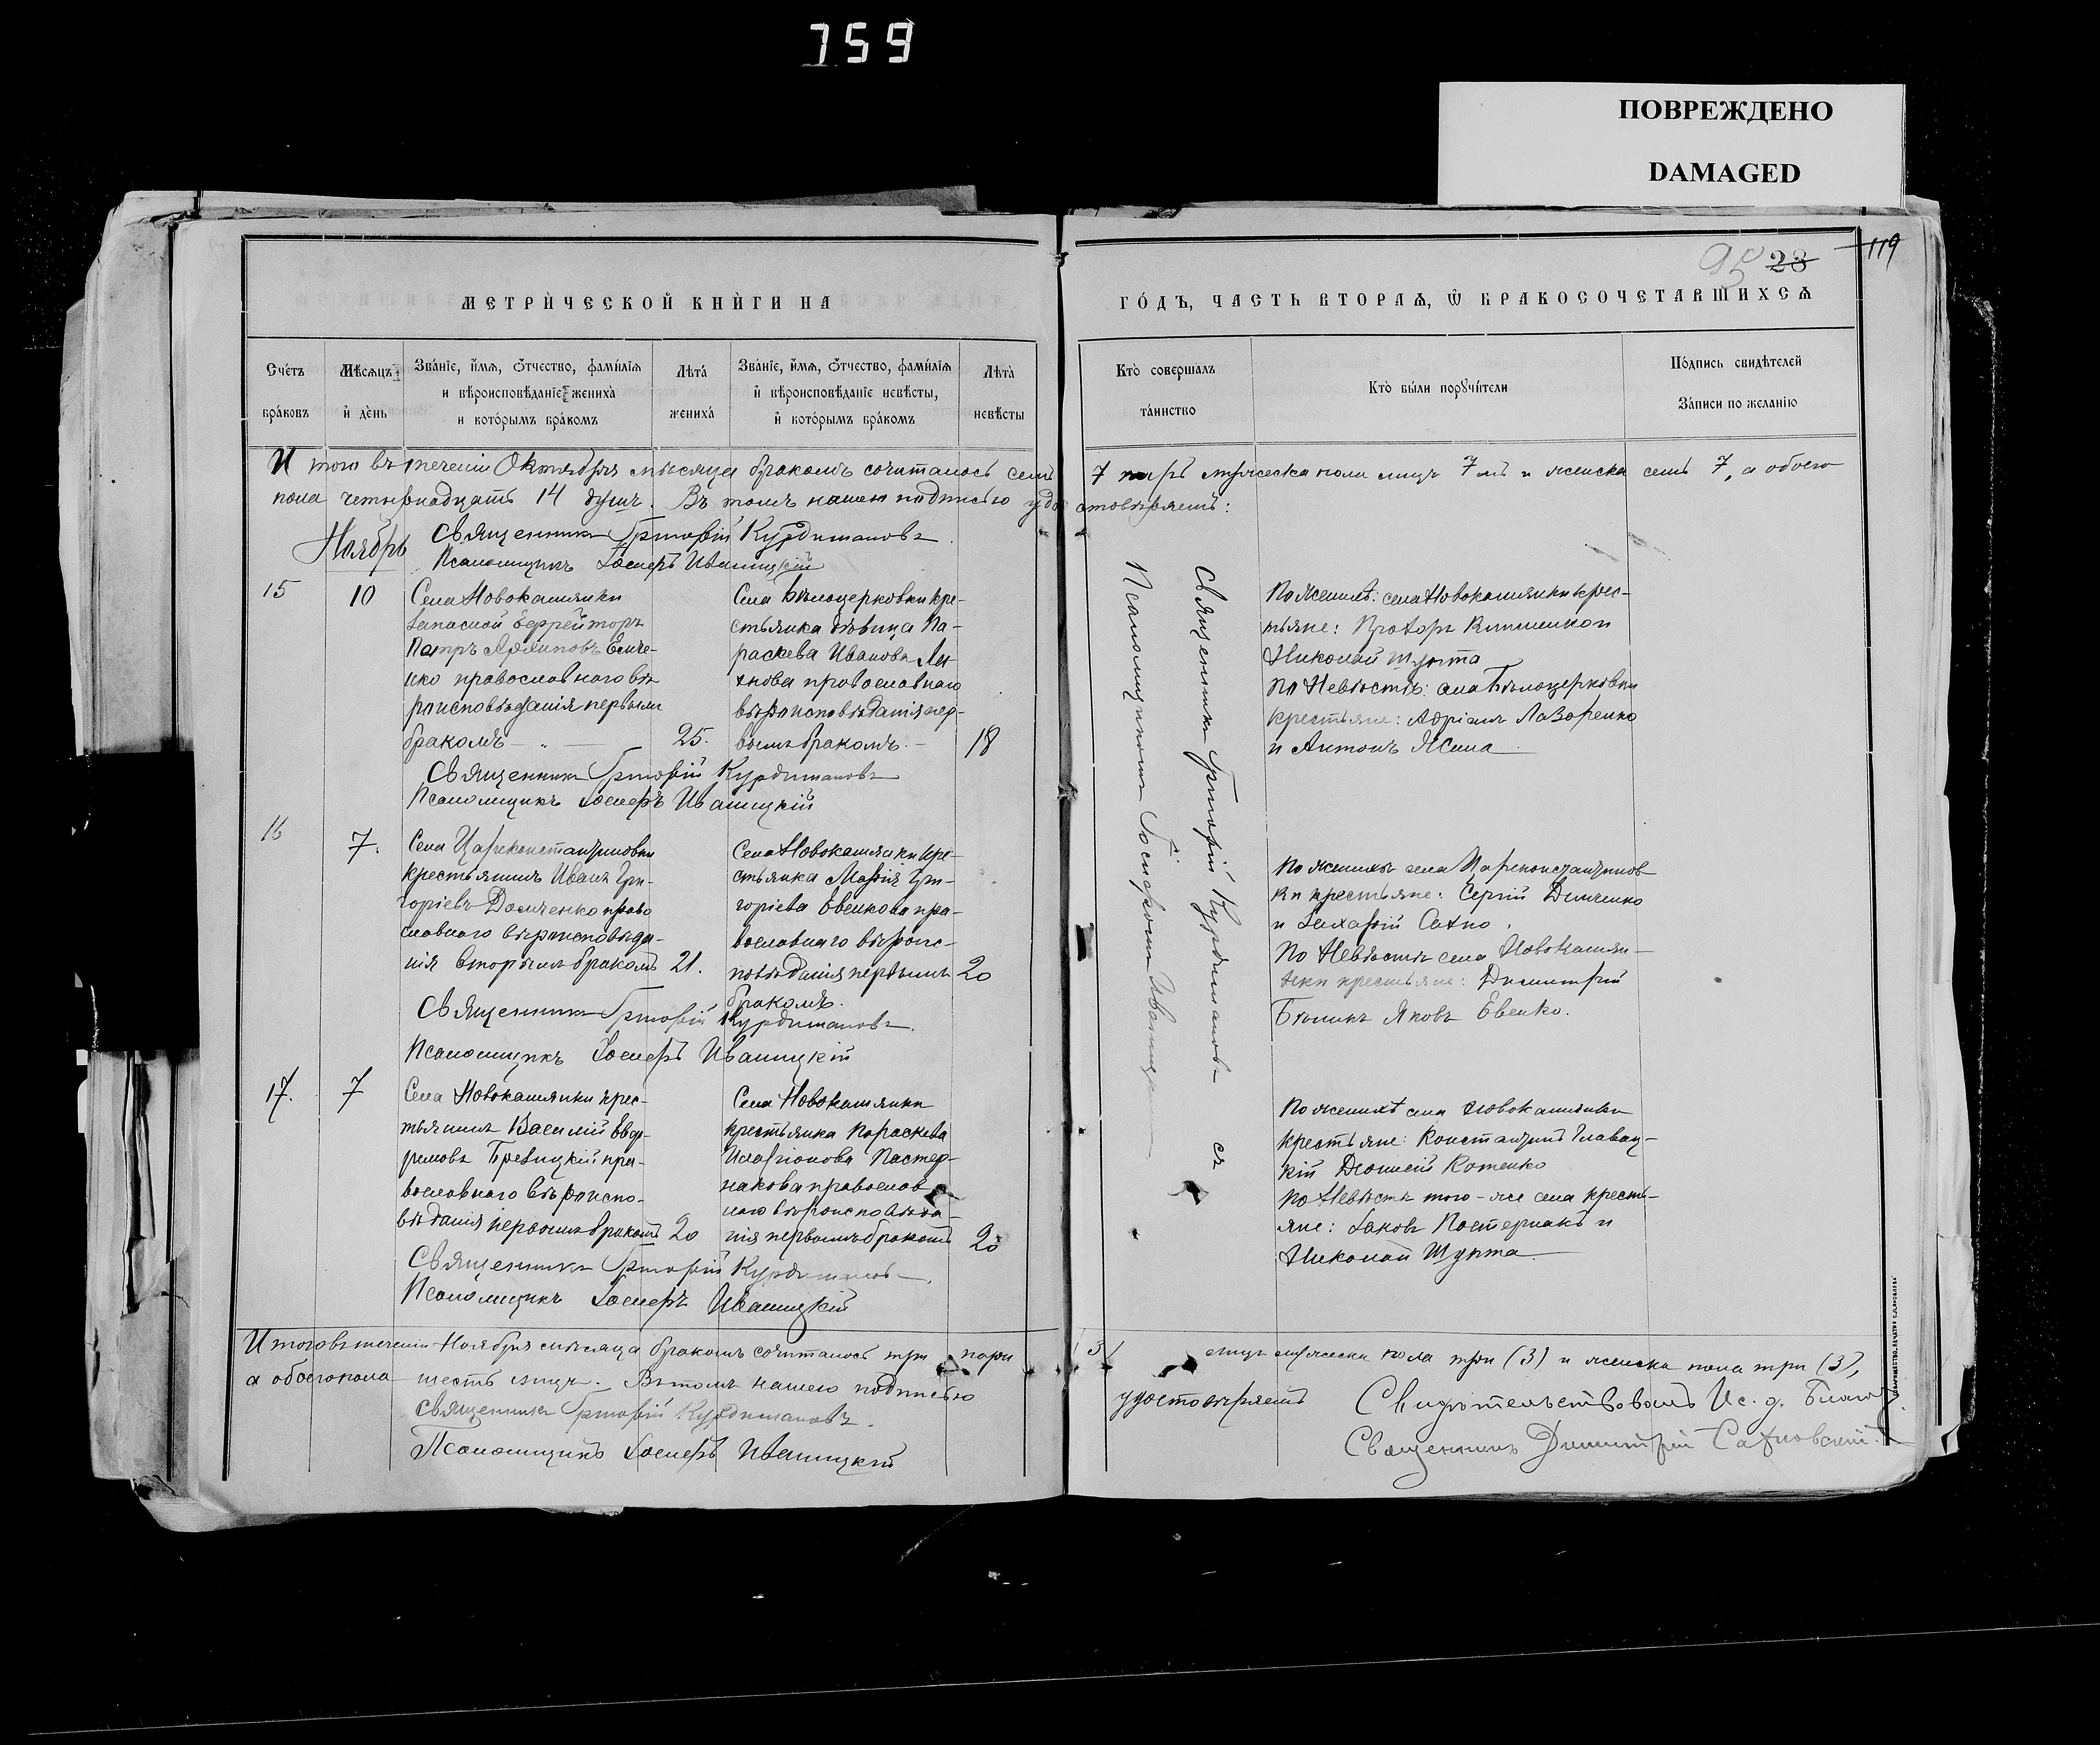 759
ПОВРЕЖДЕНО
DAMAGED
95 23 119
МЕТРИ́ЧЕСКОЙ КНИ́ГИ НА
ГО́ДЪ, ЧАСТЬ ВТОРАѦ, Ѿ БРАКОСОЧЕТАВШИХСѦ
Сче́тъ бра́ковъ
Мѣ́сѧцъ и҆ де́нь
Зва́нїе, и҆́мѧ, ѻ҆́тчество, фами́лїѧ
и вѣроисповѣ́данїе жениха̀
и кото́рымъ бра́комъ
Лѣта̀ жениха̀
Зва́нїе, и҆́мѧ, ѻ҆́тчество, фами́лїѧ
и҆ вѣроисповѣ́данїе невѣ́сты,
и҆ кото́рымъ бра́комъ
Лѣта̀ невѣ́сты
Кто̀ соверша́лъ та́инство
Кто̀ бы́ли порꙋчи́тели
По́дпись свидѣ́телей
За́писи по жела́нїю
Итого въ теченіи Октября мѣсяца бракомъ сочиталось семь 7 паръ мужеска пола лицъ 7мь и женска семь 7, а обоего
пола четырнадцать 14 душъ. Въ томъ нашею подписью удостовѣряемъ:
Священникъ Григорій Курдимановъ
Ноябрь
Псаломщикъ Іосифъ Иваницкій
15
10
Села Новокамянки
Запасной Ефрейторъ
Петръ
ко православного вѣ-
роисповѣданія первымъ
бракомъ — „ —
25.
Села Бѣлоцерковки кре-
стьянка дѣвица Па-
раскева Иванова Ли-
хнова православнаго
вѣроисповѣданія пер-
вымъ бракомъ. —
18
По Женихѣ: села Новокамянки крес-
тьяне: Прохоръ
Николай Шупта
По Невѣстѣ: села Бѣлоцерковки
крестьяне: Адріанъ Лазоренко
и Антонъ Жила
Священникъ Григорій Курдимановъ
Псаломщикъ Іосифъ Иваницкій
Священникъ Григорій Курдимановъ съ
Псаломщикомъ Іосифомъ Иваницкимъ
16
7.
Села Цареконстантиновки
крестьянинъ Иванъ Гри-
горіевъ Демченко право
славного вѣроисповѣда-
нія вторымъ бракомъ
21.
Села Новокамянки кре-
стьянка Марія Гри-
горіева Евенкова пра-
вославнаго вѣроис-
повѣданія первымъ
бракомъ.
20
По женихѣ села Цареконстантинов
ки крестьяне: Сергій Димченко
и Захарій Сахно.
По Невѣстѣ села Новокамян-
ки крестьяне: Димитрій
Бѣликъ Яковъ Евенко.
Священникъ Григорій Курдимановъ.
Псаломщикъ Іосифъ Иваницкій
17.
7
Села Новокамянки крес-
тьянинъ Василій Евф-
ремовъ пра-
вославного вѣроиспо-
вѣданія первымъ бракомъ
20
Села Новокамянки
крестьянка Параскева
Иларіонова Пастер-
накова православ-
наго вѣроисповѣда-
нія первымъ бракомъ
20
По женихѣ села Новокамянки
крестьяне: Константинъ Главац-
кій Котенко
По Невѣстѣ того-же села кресть-
яне: Іаковъ Постернакъ и
Николай Шупта.
Священникъ Григорій Курдимановъ.
Псаломщикъ Іосифъ Иваницкій
Итого въ теченіи Ноября мѣсяца бракомъ сочиталось три пары (3) лицъ мужеска пола три (3) и женска пола три (3),
а обоего пола шесть лицъ. Въ томъ нашею подписью удостовѣряемъ
Священникъ Григорій Курдимановъ.
Псаломщикъ Іосифъ Иваницкій
Свидѣтельствовалъ Ис. д. Благоч.
Священникъ Димитрій Сахновскій.